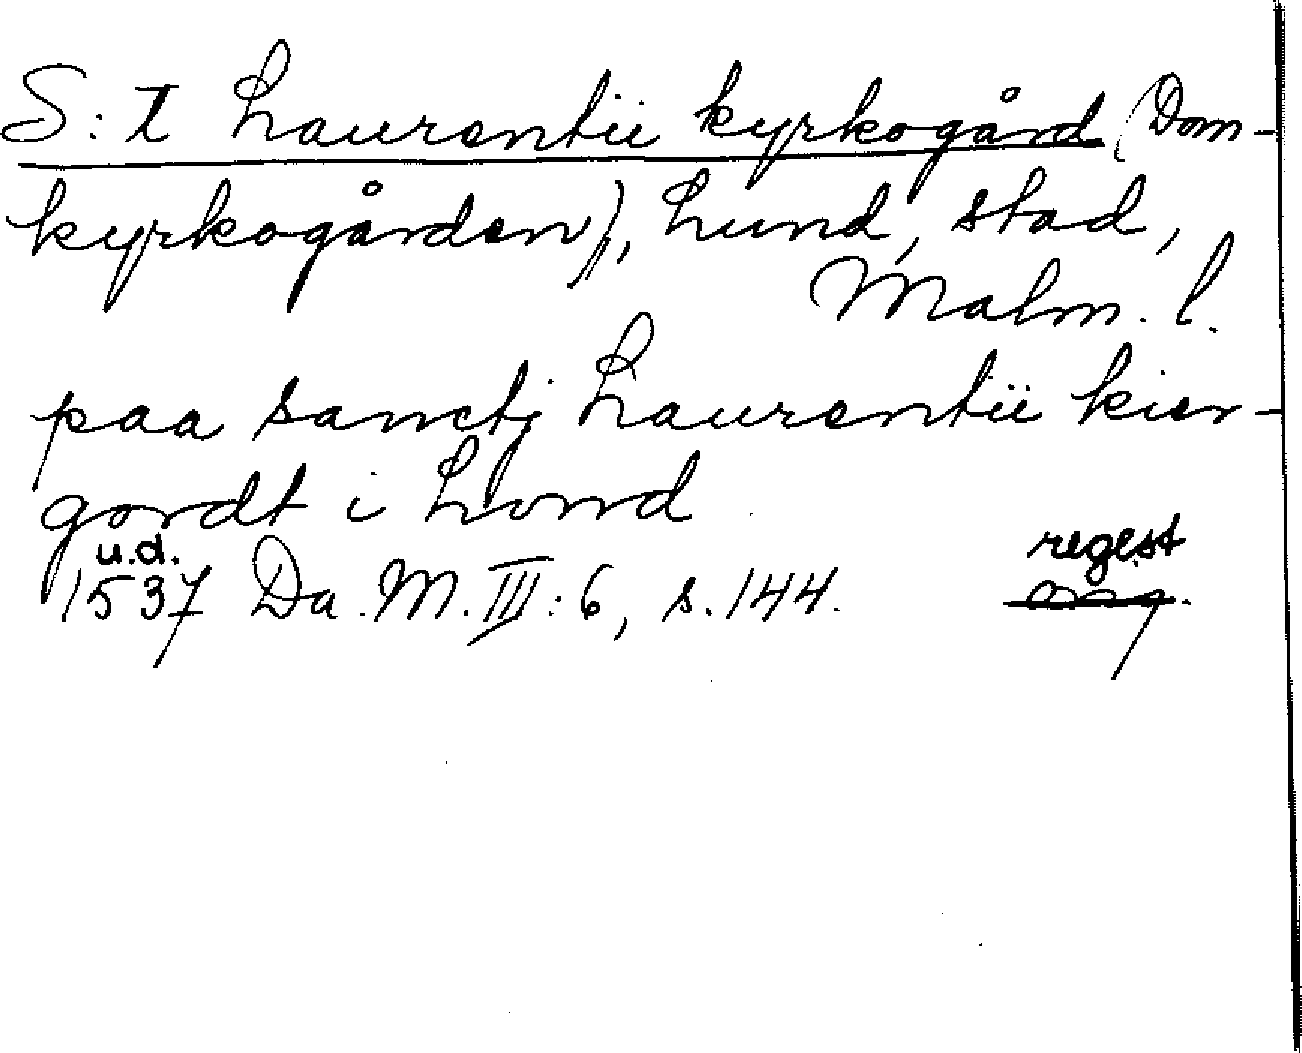 S:t Laurentii kyrkogård (Dom-
kyrkogården), Lund, stad,
Malm. l.
paa sanctj Laurentii kier-
gordt i Lund
u.d.
1537 Da. M. III:6, s. 144.
regest
orig.